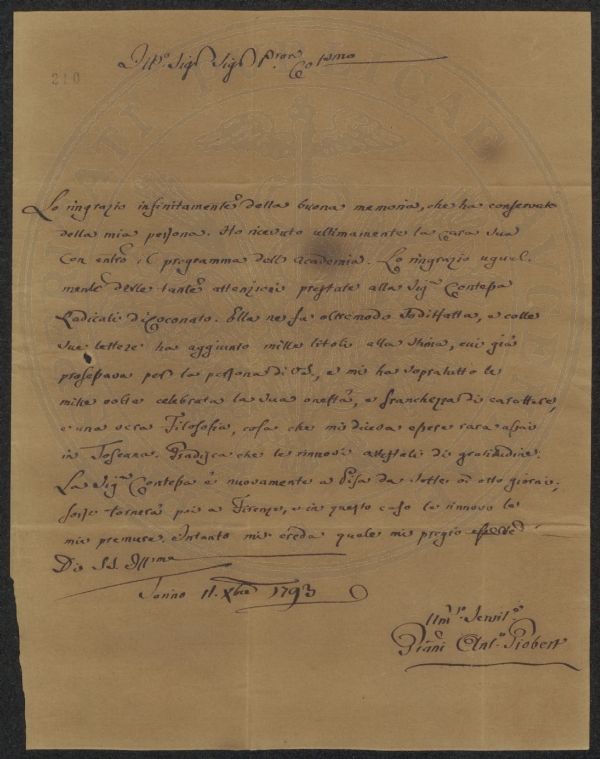 Ill.º Sig.r Sig.r P.ron Col.mo
210
Lo ringrazio infinitamente della buona memoria, che ha conservata
della mia persona. Ho ricevuto ultimamente la cara sua
con entro il programma dell'Academia. Lo ringrazio ugual-
mente delle tante attenzioni prestate alla Sig.ª Contessa
Radicati di Coconato. Ella ne fa oltremodo soddisfatta, e colle
sue lettere ha aggiunto mille titoli alla stima, cui già
professava per la persona di V.S., e mi ha sopratutto le
mille volte celebrata la sua onestà, e franchezza di carattere,
e una vera Filosofia, cosa che mi diceva essere rara assai
in Toscana. Gradisca che le rinnovi attestati di gratitudine.
La Sig.ª Contessa è nuovamente a Pisa da sette od otto giorni;
forse tornerà poi a Firenze, e in questo caso le rinnovo le
mie premure. Intanto mi creda quale mi pregio essere
Di V.S. Ill.ma
Torino 11. Xbre 1793
Um.º Servit.e
Giani Ant.º Piobert